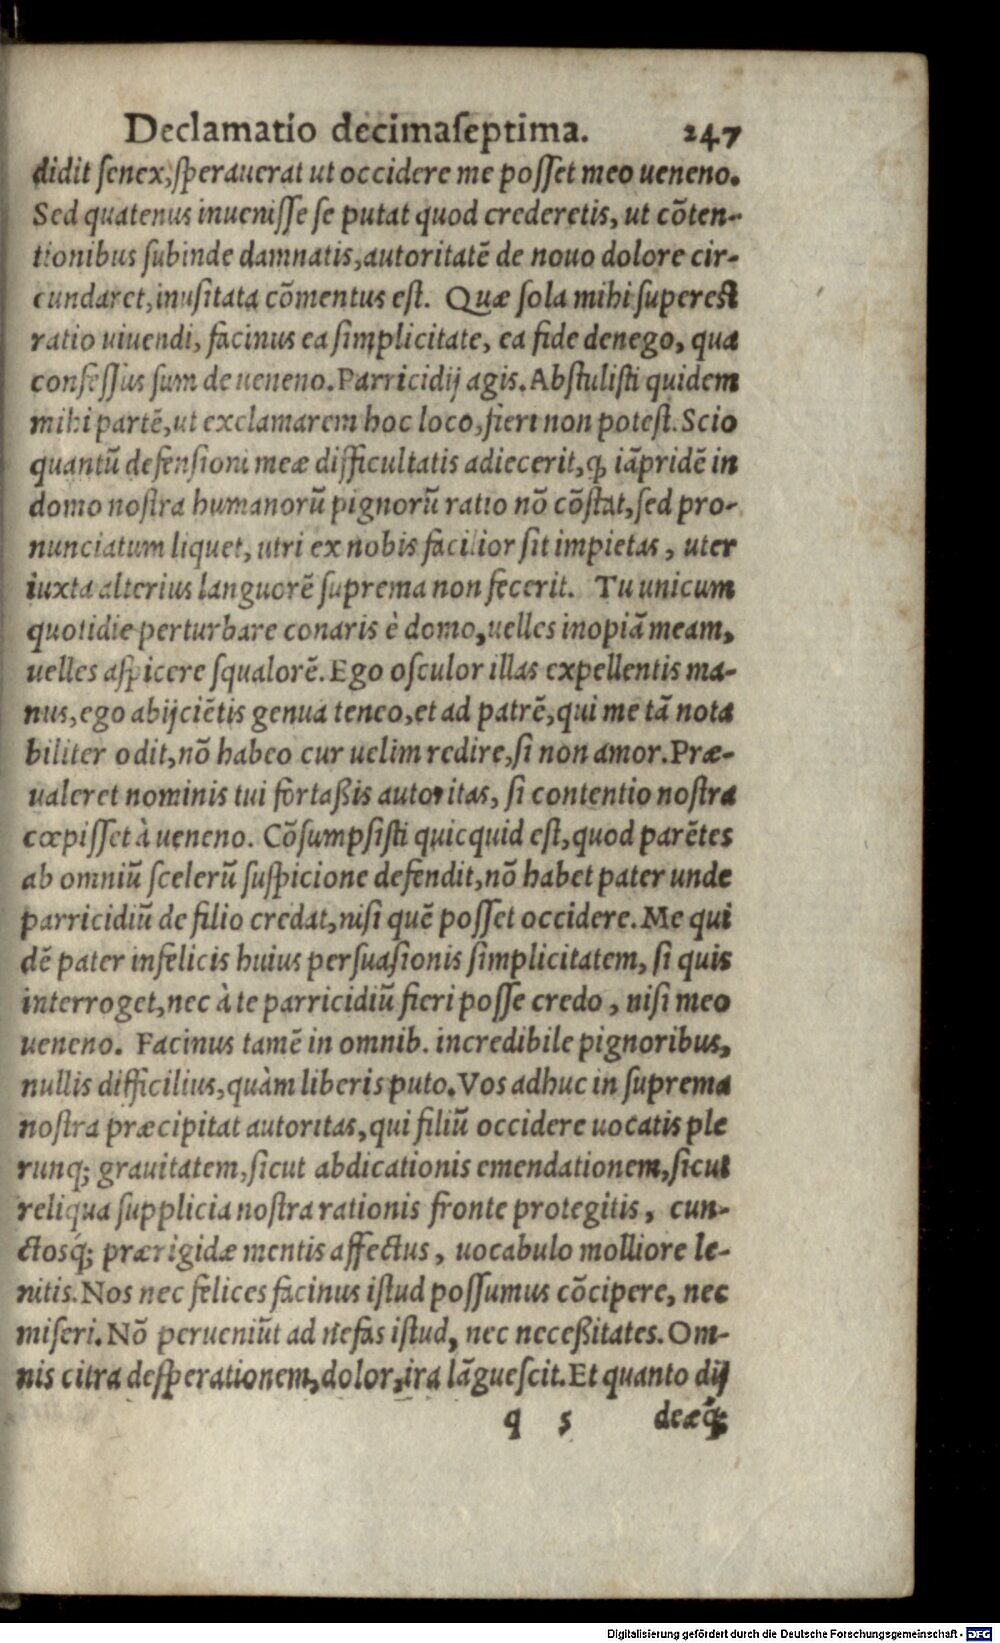 Declamatio decimaſeptima. 247
didit ſenex, ſperauerat ut occidere me poſſet meo ueneno.
Sed quatenus inueniſſe ſe putat quod crederetis, ut cōten-
tionibus ſubinde damnatis, autoritatē de nouo dolore cir-
cundaret, inuſitata cōmentus eſt. Quæ ſola mihi ſupereſt
ratio uiuendi, facinus ea ſimplicitate, ea fide denego, qua
confeſſus ſum de ueneno. Parricidij agis. Abſtuliſti quidem
mihi partē, ut exclamarem hoc loco, fieri non poteſt. Scio
quantū defenſioni meæ difficultatis adiecerit, ꝙ iāpridē in
domo noſtra humanorū pignorū ratio nō cōſtat, ſed pro-
nunciatum liquet, utri ex nobis facilior ſit impietas, uter
iuxta alterius languorē ſuprema non fecerit. Tu unicum
quotidie perturbare conaris è domo, uelles inopiā meam,
uelles aſpicere ſqualorē. Ego oſculor illas expellentis ma-
nus, ego abijciētis genua teneo, et ad patrē, qui me tā nota
biliter odit, nō habeo cur uelim redire, ſi non amor. Præ-
ualeret nominis tui fortaßis autoritas, ſi contentio noſtra
cœpiſſet à ueneno. Cōſumpſiſti quicquid eſt, quod parētes
ab omniū ſcelerū ſuſpicione defendit, nō habet pater unde
parricidiū de filio credat, niſi quē poſſet occidere. Me qui
dē pater infelicis huius perſuaſionis ſimplicitatem, ſi quis
interroget, nec à te parricidiū fieri poſſe credo, niſi meo
ueneno. Facinus tamē in omnib. incredibile pignoribus,
nullis difficilius, quàm liberis puto. Vos adhuc in ſuprema
noſtra præcipitat autoritas, qui filiū occidere uocatis ple
runq; grauitatem, ſicut abdicationis emendationem, ſicut
reliqua ſupplicia noſtra rationis fronte protegitis, cun-
ctosq́; prærigidæ mentis affectus, uocabulo molliore le-
nitis. Nos nec felices facinus iſtud poſſumus cōcipere, nec
miſeri. Nō perueniūt ad nefas iſtud, nec neceßitates. Om-
nis citra deſperationem, dolor, ira lāgueſcit. Et quanto dij
q 5 deæq́;
Digitalisierung gefördert durch die Deutsche Forschungsgemeinschaft - DFG